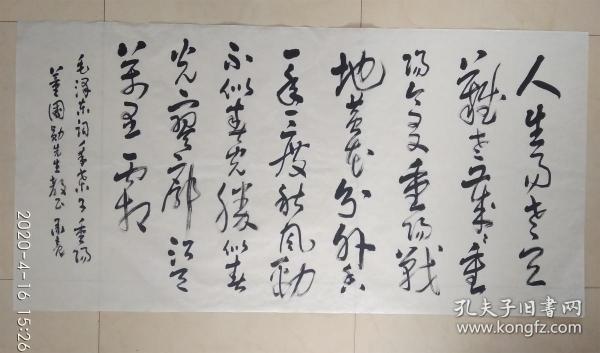 人生易老天
難老歲歲重
陽今又重陽戰
地黄花分外香
一年一度秋风勁
不似春光勝似春
光寥廓江天
萬里霜
毛澤东詞采桑子重陽
董國勋先生教正
2020-4-16 15:26
孔夫子旧书网
www.kongfz.com